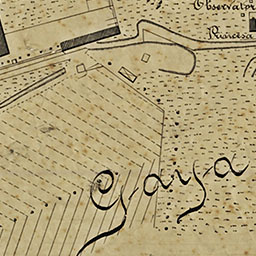 Observator
Princesa
Gaya